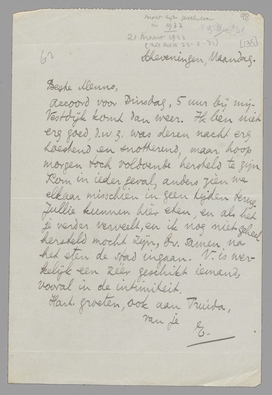 98
21 Maart 1933
62
Scheveningen, Maandag.
Beste Menno,
Accoord voor Dinsdag, 5 uur bij mij.
Vestdijk komt dan weer. Ik ben niet
erg goed, d.w.z. was deren nacht erg
hoestend en snotterend, maar hoop
morgen toch voldoende hersteld te zijn.
Kom in ieder geval, anders zien we
elkaar misschien in geen tijden terug.
Jullie kunnen hier eten, en als het
je verder verveelt, en ik nog niet geheel
hersteld mocht zijn, bv. samen na
het eten de stad ingaan. V. is wer-
kelijk een zéér geschikt iemand,
vooral in de intimiteit.
Hart. groeten, ook aan Truida,
van je E.